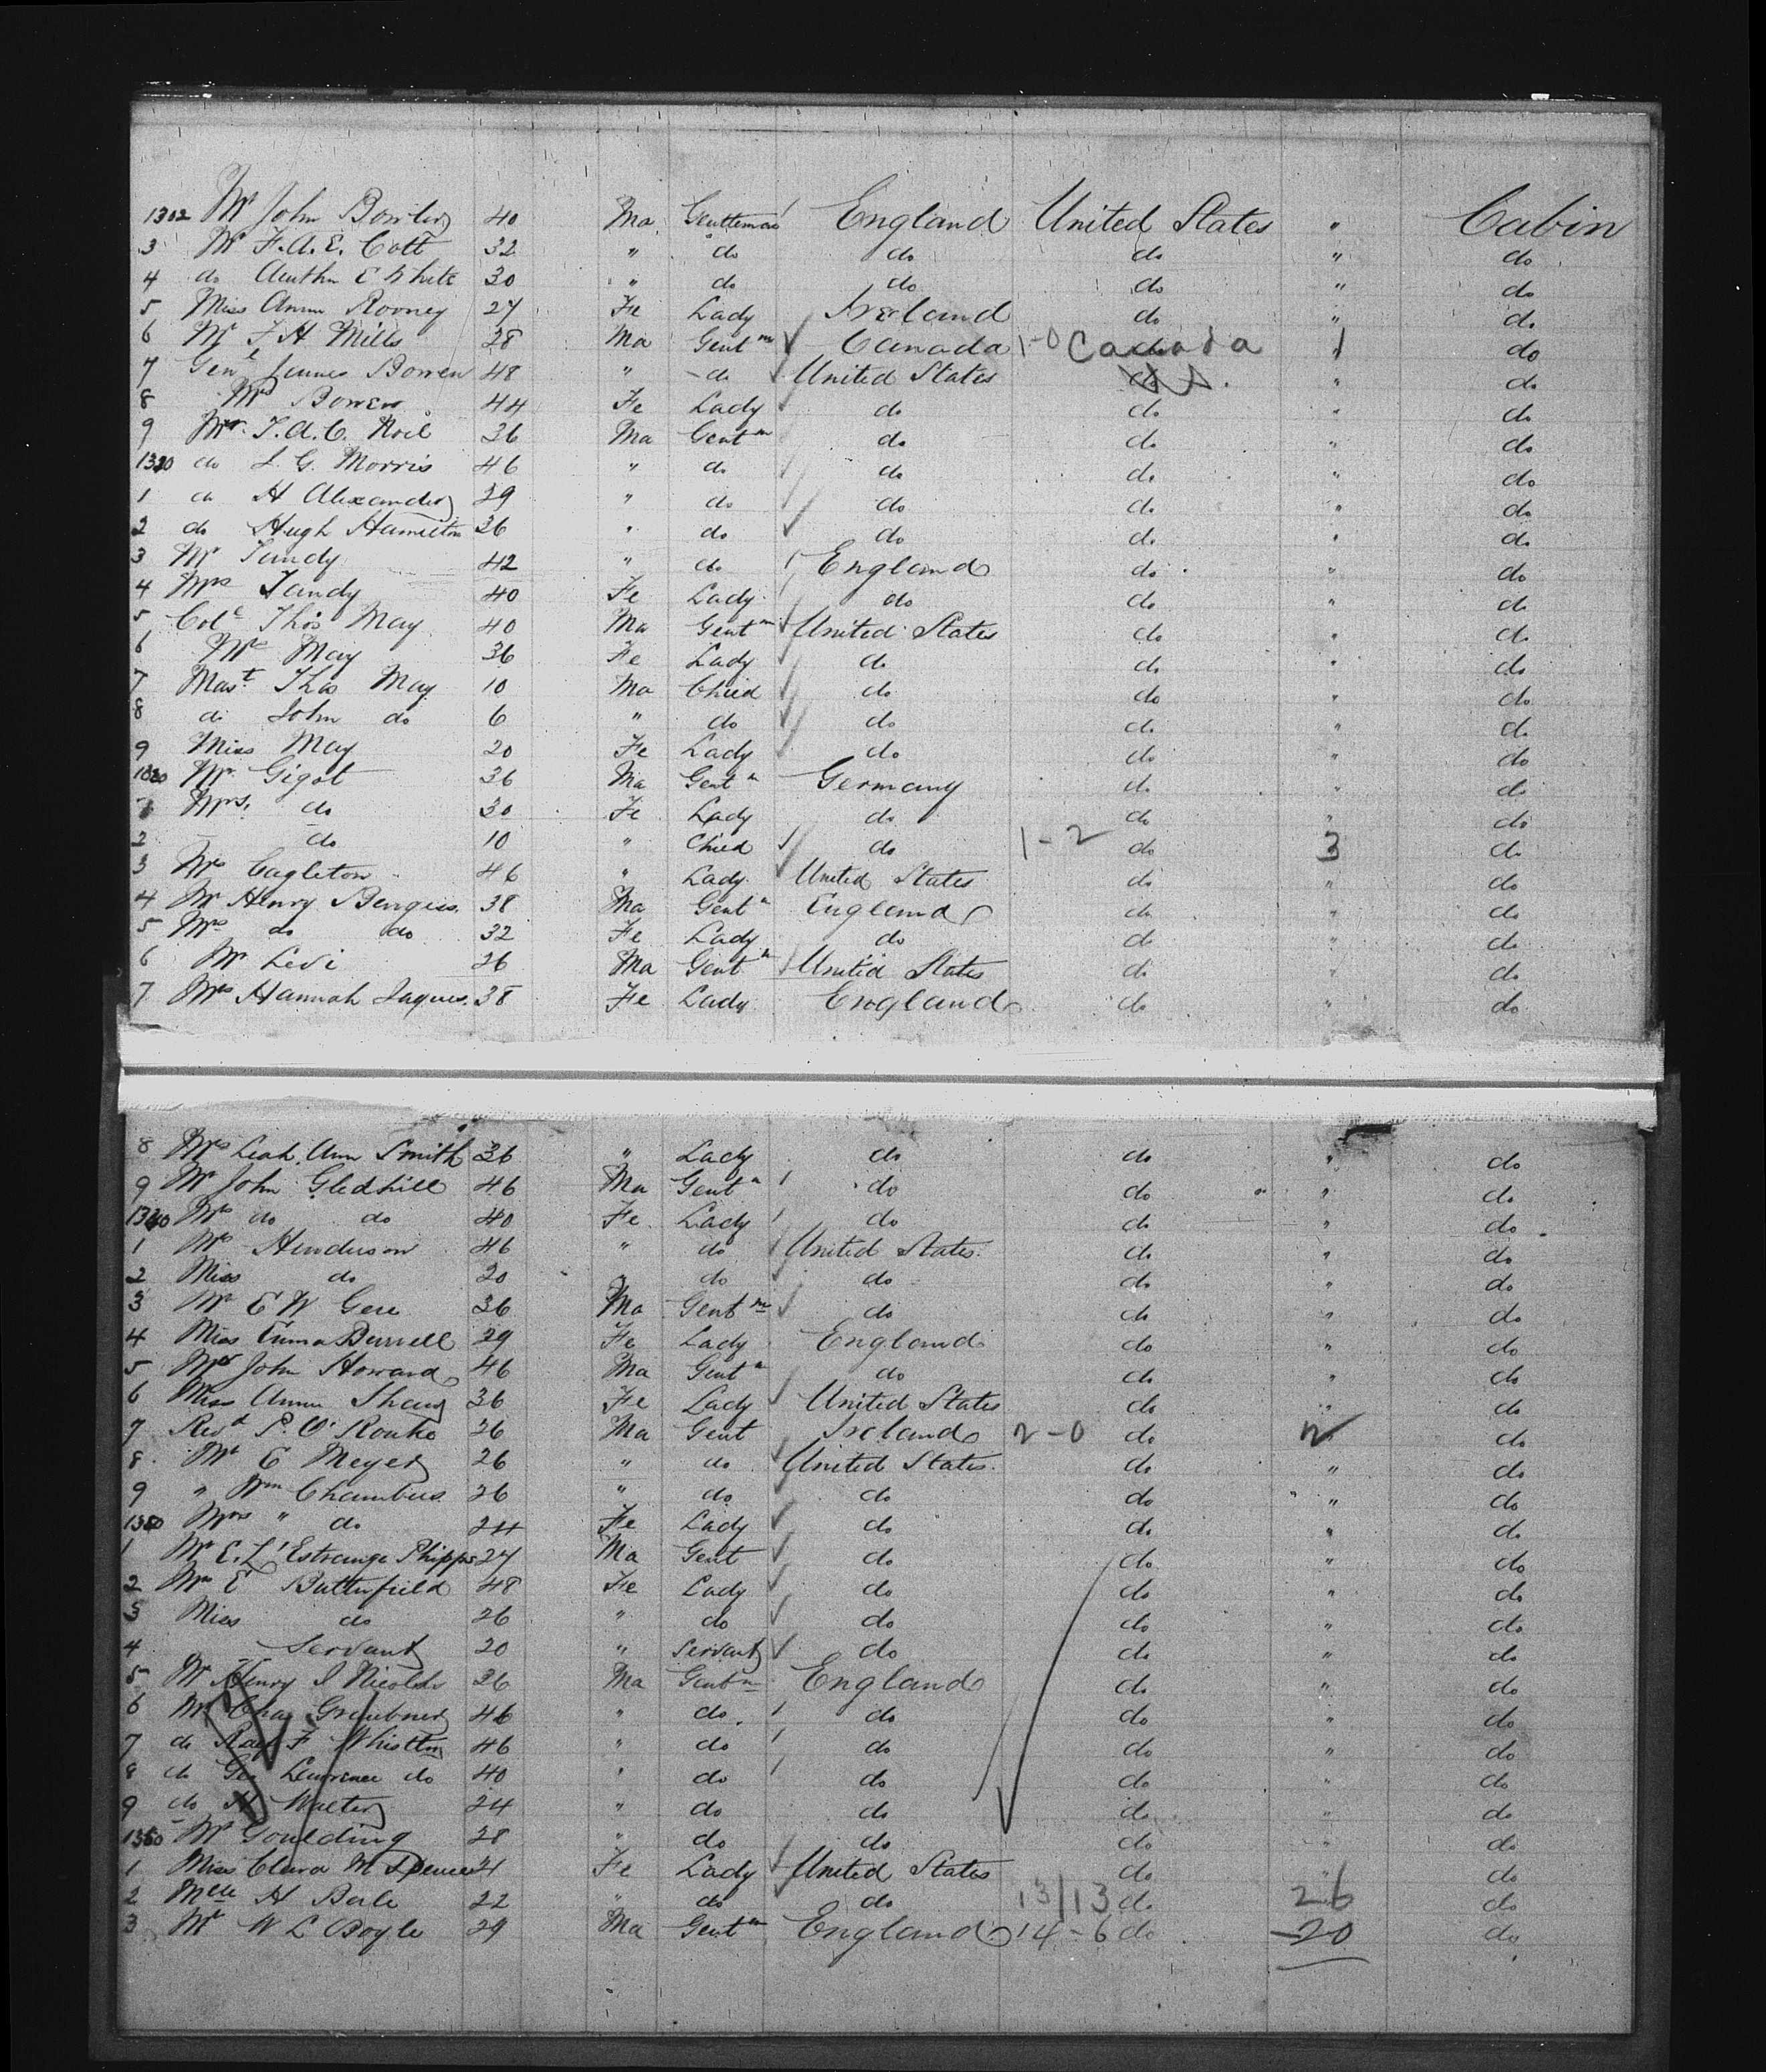 1302 Mr John Bowler 40 Ma Gentleman England United States " Cabin
3 Mr F. A. E. Cott 32 " do do do " do
4 do E White 30 " do do do " do
5 Miss Annie Rooney 27 Fe Lady Ireland do " do
6 Mr F H Mills 28 Ma Gentm Canada 1-0 Canada 1 do
7 Genl James Bowen 48 " do United States do U.S. " do
8 Mrs Bowen 44 Fe Lady do do " do
9 Mr. T. A. C. Noil 36 Ma Gentm do do " do
1310 do L. G. Morris 46 " do do do " do
1 do H Alexander 29 " do do do " do
2 do Hugh Hamilton 36 " do do do " do
3 Mr Tandy 42 " do England do " do
4 Mrs Tandy 40 Fe Lady do do " do
5 Col Thos May 40 Ma Gentm United States do " do
6 Mrs May 36 Fe Lady do do " do
7 Mast. Thos May 10 Ma Child do do " do
8 do John do 6 " do do do " do
9 Miss May 20 Fe Lady do do " do
1320 Mr. Gigot 36 Ma Gentn Germany do " do
1 Mrs. do 30 Fe Lady do do " do
2 do 10 " Child do 1-2 do 3 do
3 Mrs Eagleton 46 " Lady United States do " do
4 Mr Henry 38 Ma Gentn England do " do
5 Mrs do do 32 Fe Lady do do " do
6 Mr Levi 26 Ma Gentn United States do " do
7 Mrs Hannah Jaques. 38 Fe Lady England do " do
8 Mrs Leah. Ann Smith 36 " Lady do do " do
9 Mr John Gledhill 46 Ma Gentn do do " do
1330 Mrs do do 40 Fe Lady do do " do
1 Mrs Henderson 46 " do United States. do " do
2 Miss do 20 " do do do " do
3 Mr E W Gere 36 Ma Gentm do do " do
4 Miss Emma Burrell 29 Fe Lady England do " do
5 Mr John Howard 46 Ma Gentn do do " do
6 Miss Annie 36 Fe Lady United States do " do
7 Revd P. O'Rourke 26 Ma Gent Ireland 2-0 do 2 do
8. Mr E Meyer 26 " do United States. do " do
9 " Wm Chambers 26 " do do do " do
1340 Mrs " do 24 Fe Lady do do " do
1 Mr E. L'Estrange Phipps 27 Ma Gent do do " do
2 Mrs E Butterfield 48 Fe Lady do do " do
3 Miss do 26 " do do do " do
4 Servant 20 " Servant do do " do
5 Mr Henry J Nicolls 26 Ma Gentm England do " do
6 Mr Chas 46 " do do do " do
7 do F 46 " do do do " do
8 do Geo Lawrence do 40 " do do do " do
9 do H Walter 24 " do do do " do
1350 Mr Goulding 28 " do do do " do
1 Miss Clara M Spencer 21 Fe Lady United States do " do
2 Mlle H Berle 22 " do do 13/13 do 26 do
3 Mr W L Boyle 29 Ma Gentm England 14-6 do 20 do